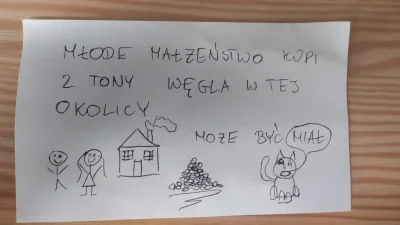 MŁODE MAŁŻEŃSTWO KUPI
2 TONY WĘGLA W TEJ
OKOLICY
MOŻE BYĆ MIAŁ